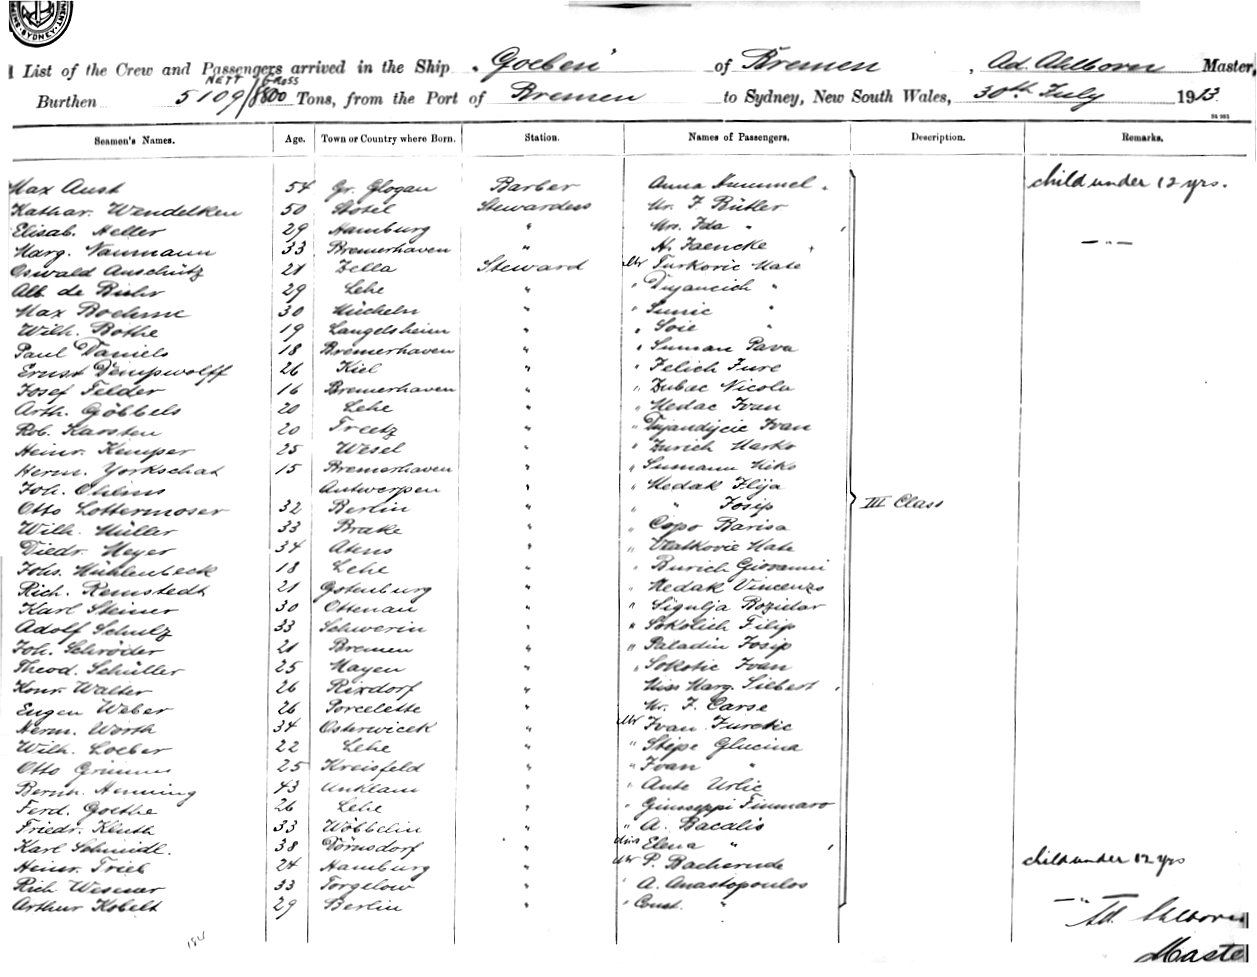 MENT, SYDNEY
List of the Crew and Passengers arrived in the Ship "Goeben" of Bremen, Ad. Ahlborn Master,
NETT GROSS
Burthen 5109/8800 Tons, from the Port of Bremen to Sydney, New South Wales, 30th July 1913
Seamen's Names. Age. Town or Country where Born. Station. Names of Passengers. Description. Remarks.
Max Aust 54 Gr. Glogau Barber Anna Hummel child under 12 yrs.
Kathar. Wendelken 50 Stotel Stewardess Mr. F Bütler
Elisab. Heller 29 Hamburg " Mrs. Ida "
Marg. Naumann 33 Bremerhaven " H. Jaencke — " —
Oswald Anschütz 21 Zella Steward Mr Turkovic Mate
Alb. de Buhr 29 Lehe " " Dujancich "
Max Boehme 30 Mücheln " " Sunic "
Wilh. Bothe 19 Langelsheim " " Soie "
Paul Daniels 18 Bremerhaven " " Suman Pava
Ernst Dempwolff 26 Kiel " " Felich Jure
Josef Felder 16 Bremerhaven " " Zubac Nicola
Arth. Göbbels 20 Lehe " " Medac Ivan
Rob. Karsten 20 Treetz " " Dujandijcic Ivan
Heinr. Kemper 25 Wesel " " Zurich Marko
Herm. Yorkschat 15 Bremerhaven " " Sumann Miko
Joh. Antwerpen " " Medak Ilija
Otto Lottermoser 32 Berlin " " " Josip III Class
Wilh. Müller 33 Brake " " Copo Barisa
Diedr. Meyer 34 Atens " " Vlatkovic Mate
Johs. Mühlenbeck 18 Lehe " " Burich Giovanni
Rich. Remstedt 21 Gotenburg " " Medak Vincenzo
Karl Steiner 30 Ottenau " " Sigulja Bozidar
Adolf Schulz 33 Schwerin " " Sokolich Filip
Joh. Schröder 21 Bremen " " Paladin Josip
Theod. Schüller 25 Mayen " " Sokotic Ivan
Konr. Walter 26 Rixdorf " Miss Marg. Siebert
Eugen Weber 26 Porcelette " Mr. F. Carse
Herm. Worth 34 Osterwieck " Mr Ivan Juretic
Wilh. Loeber 22 Lehe " " Stipe Glucina
Otto Grimm 25 Kreisfeld " " Ivan "
Bernh. Henning 43 Anklam " " Ante Urlic
Ferd. Goethe 26 Lehe " " Giuseppi Finmaro
Friedr. Kluth 33 Wöbbelin " " A. Bacalis
Karl Schmidt. 38 Dornsdorf " Miss Elena "
Heinr. Trieb 24 Hamburg " Mr P. Bachernde child under 12 yrs
Rich Wesmar 33 Torgelow " " A. Anastopoulos
Arthur Kobelt 29 Berlin " " Const. " — " —
Ad. Ahlborn
Maste